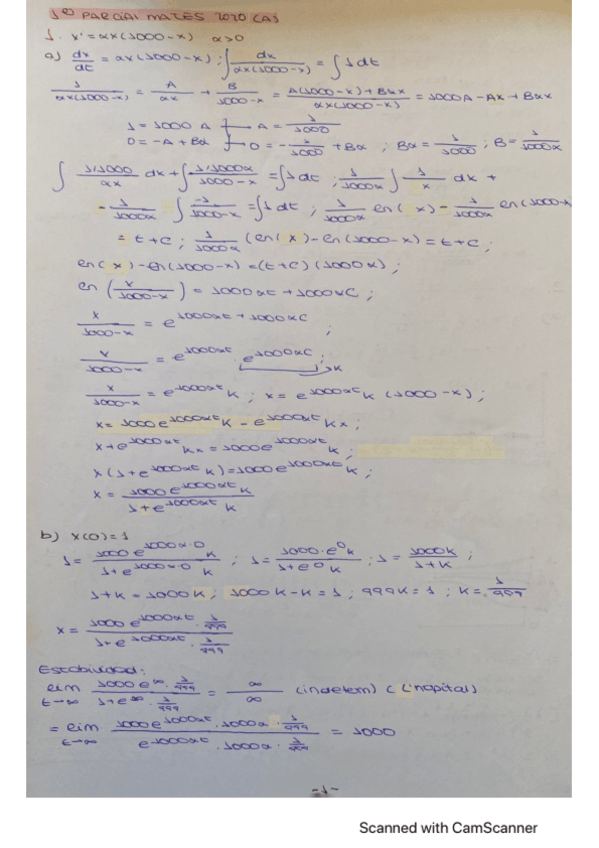 1er PARCIAL MATES 2020 (A)
1. x' = αx(1000-x)   α>0
a) dx/dt = αx(1000-x) ; ∫ dx/(αx(1000-x)) = ∫ 1 dt
1/(αx(1000-x)) = A/(αx) + B/(1000-x) = (A(1000-x) + Bαx)/(αx(1000-x)) = 1000A - Ax + Bαx
1 = 1000 A → A = 1/1000
0 = -A + Bα → 0 = -1/1000 + Bα ; Bα = 1/1000 ; B = 1/(1000α)
∫ (1/1000)/(αx) dx + ∫ (1/1000α)/(1000-x) = ∫ 1 dt ; 1/(1000α) ∫ 1/x dx +
- 1/(1000α) ∫ -1/(1000-x) = ∫ 1 dt ; 1/(1000α) ln(x) - 1/(1000α) ln(1000-x)
= t + C ; 1/(1000α) (ln(x) - ln(1000-x) = t + C ;
ln(x) - ln(1000-x) = (t+C)(1000α) ;
ln (x/(1000-x)) = 1000αt + 1000αC ;
x/(1000-x) = e^(1000αt + 1000αC) ;
x/(1000-x) = e^(1000αt) · e^(1000αC) ; → K
x/(1000-x) = e^(1000αt) K ; x = e^(1000αt) K (1000-x) ;
x = 1000 e^(1000αt) K - e^(1000αt) Kx ;
x + e^(1000αt) Kx = 1000 e^(1000αt) K ;
x(1 + e^(1000αt) K) = 1000 e^(1000αt) K ;
x = 1000 e^(1000αt) K / (1 + e^(1000αt) K)
b) x(0) = 1
1 = 1000 e^(1000α·0) K / (1 + e^(1000α·0) K) ; 1 = 1000·e^0 K / (1 + e^0 K) ; 1 = 1000K/(1+K) ;
1 + K = 1000K ; 1000K - K = 1 ; 999K = 1 ; K = 1/999
x = 1000 e^(1000αt) · 1/999 / (1 + e^(1000αt) · 1/999)
Estabilidad:
lim t→∞ 1000 e^∞ · 1/999 / (1 + e^∞ · 1/999) = ∞/∞ (indeterm) (L'hopital)
= lim t→∞ 1000 e^(1000αt) · 1000α · 1/999 / (e^(1000αt) · 1000α · 1/999) = 1000
-1-
Scanned with CamScanner